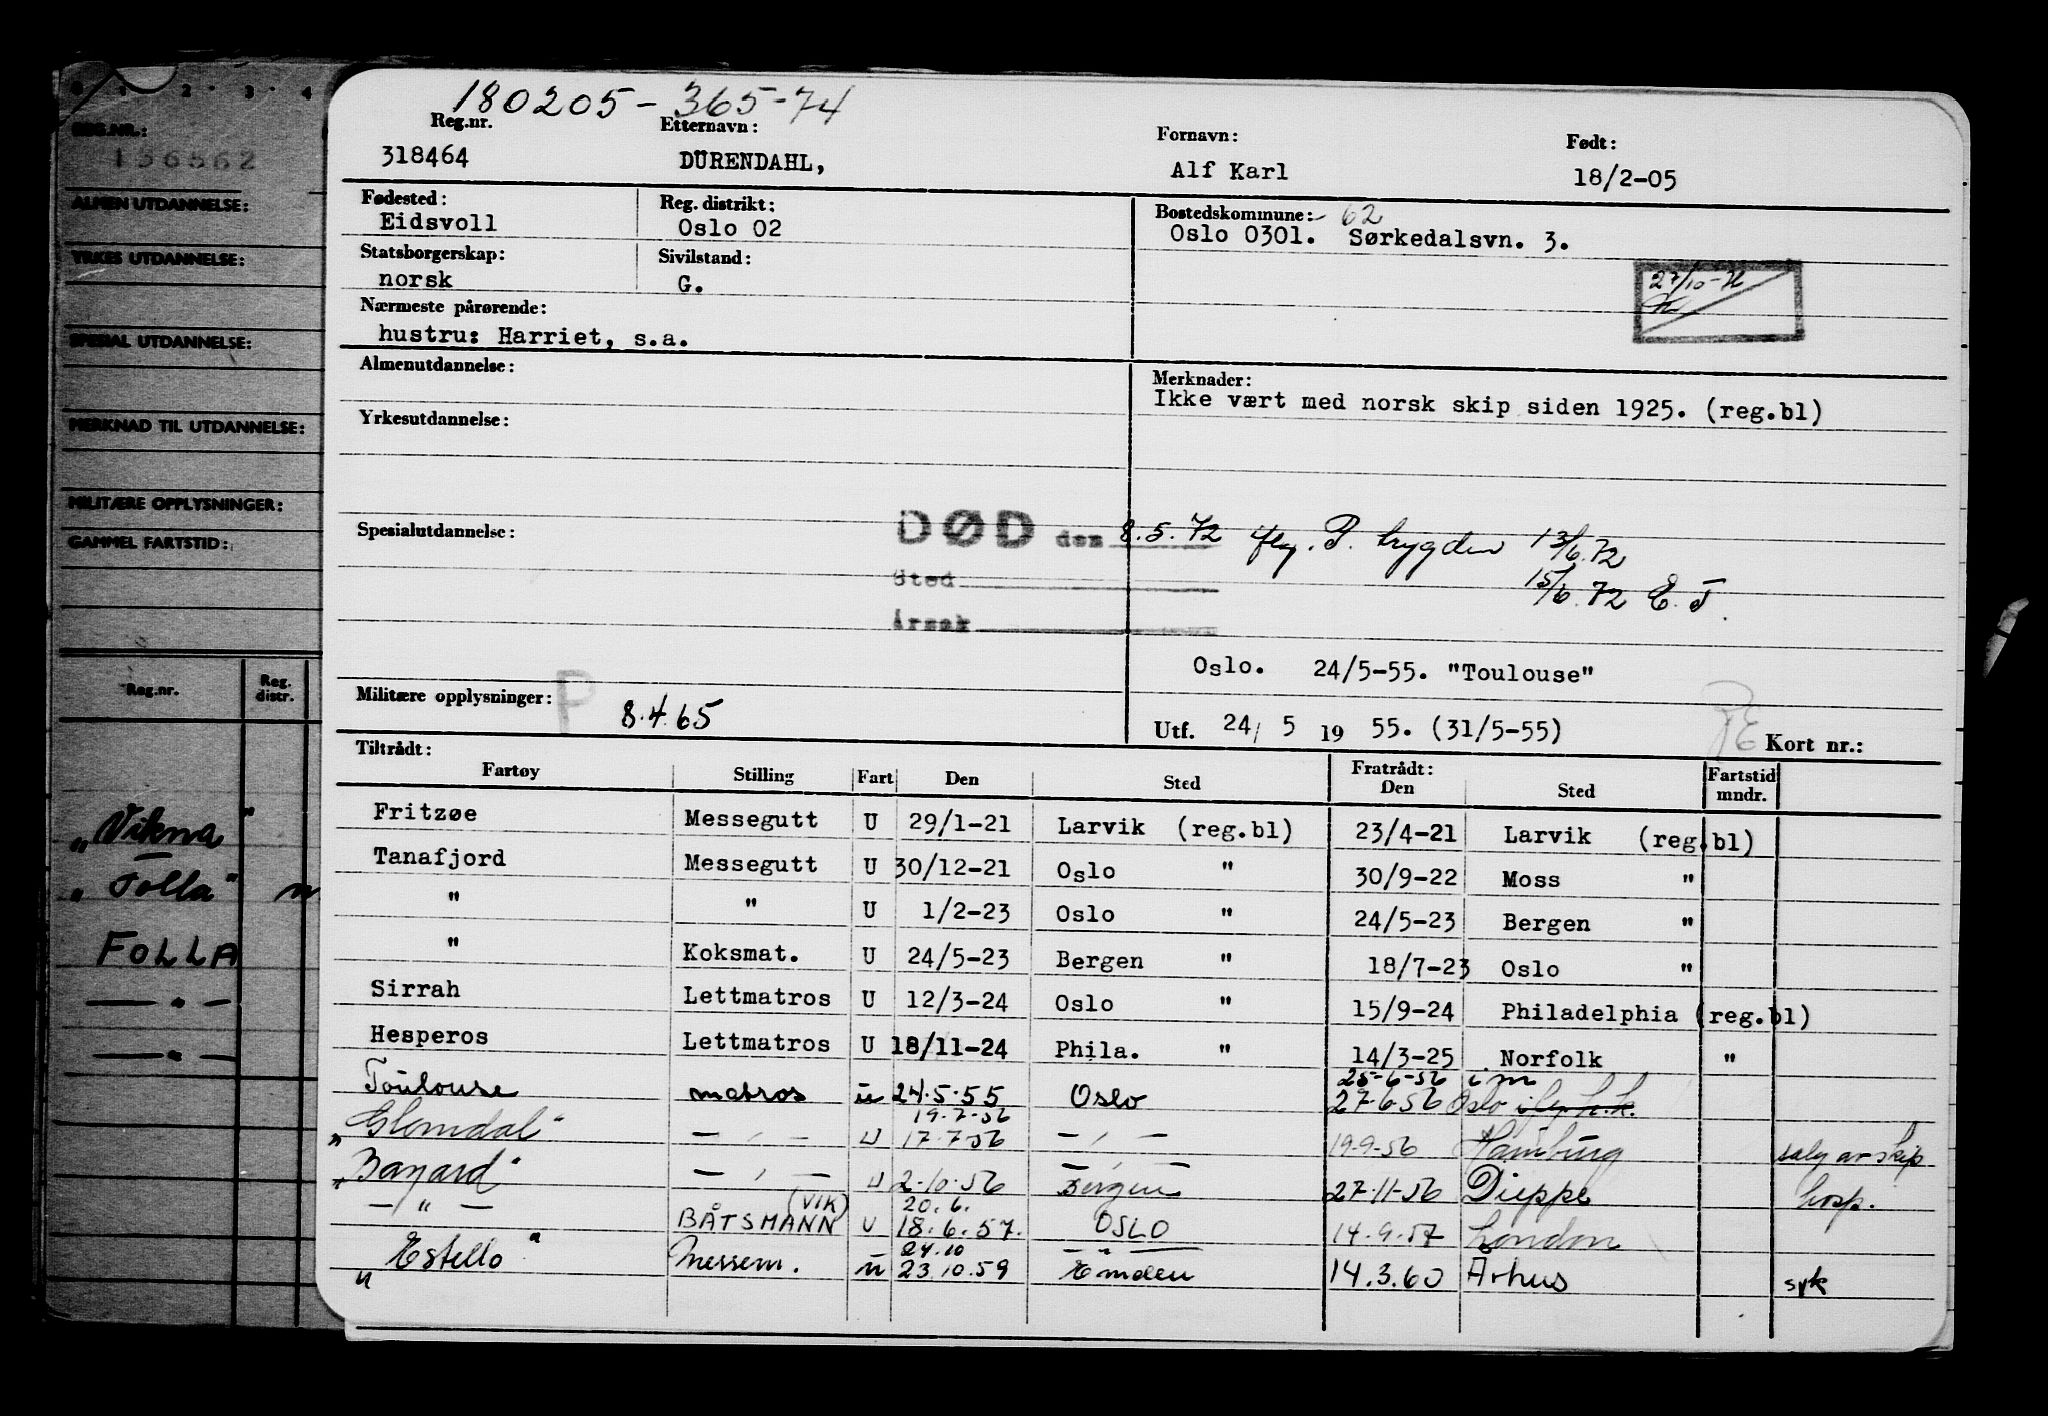 0 1 2 3 4
REG.NR.:
156562
ALMEN UTDANNELSE:
YRKES UTDANNELSE:
SPESIAL UTDANNELSE:
MERKNAD TIL UTDANNELSE:
MILITÆRE OPPLYSNINGER:
GAMMEL FARTSTID:
Reg.nr. Reg. distr.
"Vikna"
"Folla"
FOLLA
— " —
— " —
180205-365-74
Reg.nr. Etternavn: Fornavn: Født:
318464 DÜRENDAHL, Alf Karl 18/2-05
Fødested: Reg. distrikt: Bostedskommune: 62
Eidsvoll Oslo 02 Oslo 0301. Sørkedalsvn. 3.
Statsborgerskap: Sivilstand:
norsk G.
27/10-
Nærmeste pårørende:
hustru: Harriet, s.a.
Almenutdannelse: Merknader:
Ikke vært med norsk skip siden 1925. (reg.bl)
Yrkesutdannelse:
Spesialutdannelse: DØD den 8.5.72 flg. P. trygden 13/6.72
Sted 15/6.72 E.T.
Årsak
Oslo. 24/5-55. "Toulouse"
Militære opplysninger: P 8.4.65
Utf. 24/ 5 19 55. (31/5-55) Kort nr.:
Tiltrådt: Fratrådt: Fartstid
Fartøy Stilling Fart Den Sted Den Sted mndr.
Fritzøe Messegutt U 29/1-21 Larvik (reg.bl) 23/4-21 Larvik (reg.bl)
Tanafjord Messegutt U 30/12-21 Oslo " 30/9-22 Moss "
" " U 1/2-23 Oslo " 24/5-23 Bergen "
" Koksmat. U 24/5-23 Bergen " 18/7-23 Oslo "
Sirrah Lettmatros U 12/3-24 Oslo " 15/9-24 Philadelphia (reg.bl)
Hesperos Lettmatros U 18/11-24 Phila. " 14/3-25 Norfolk "
25-6-56 i.m
Toulouse matros u 24.5.55 Oslo 27-6-56 Oslo
19.7-56
"Glomdal" — , — U 17.7.56 — , — 19-9-56 Hamburg salg av skip
"Bayard" — , — U 2-10-56 Bergen 27-11-56 Dieppe hosp.
(VIK) 20.6.
— " — BÅTSMANN U 18.6.57. OSLO 14-9-57 London
24.10 — " —
"Estello" Messem. u 23.10.59 Emden 14.3.60 Arhus syk